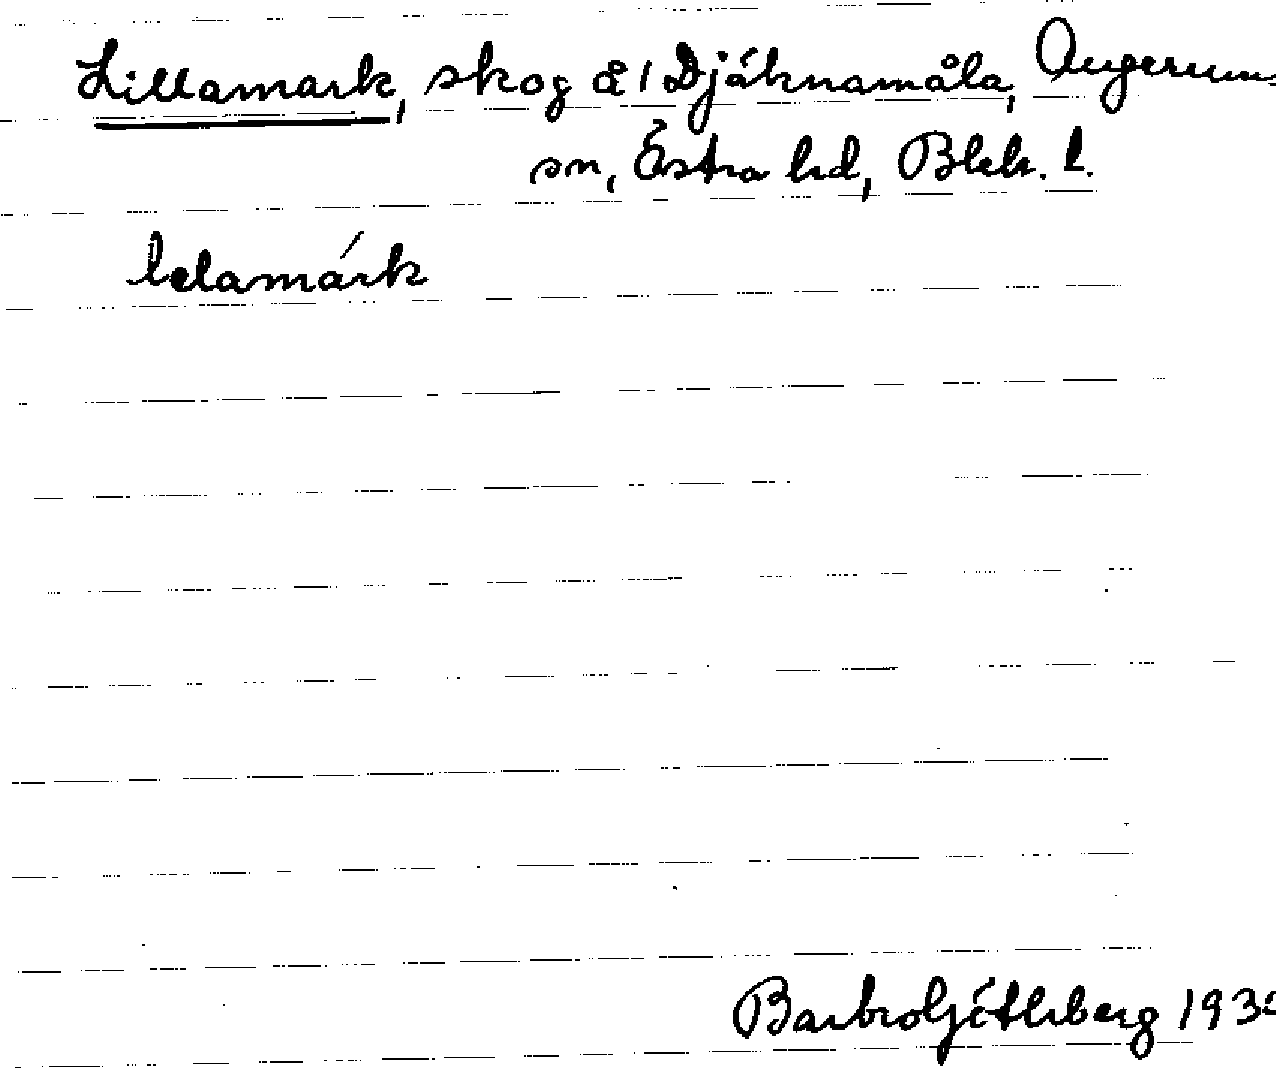 Lillamark, skog å 1 Djäknamåla, Augerums
sn, Östra hd, Blek. l.
lelamárk
Barbro Götherberg 193